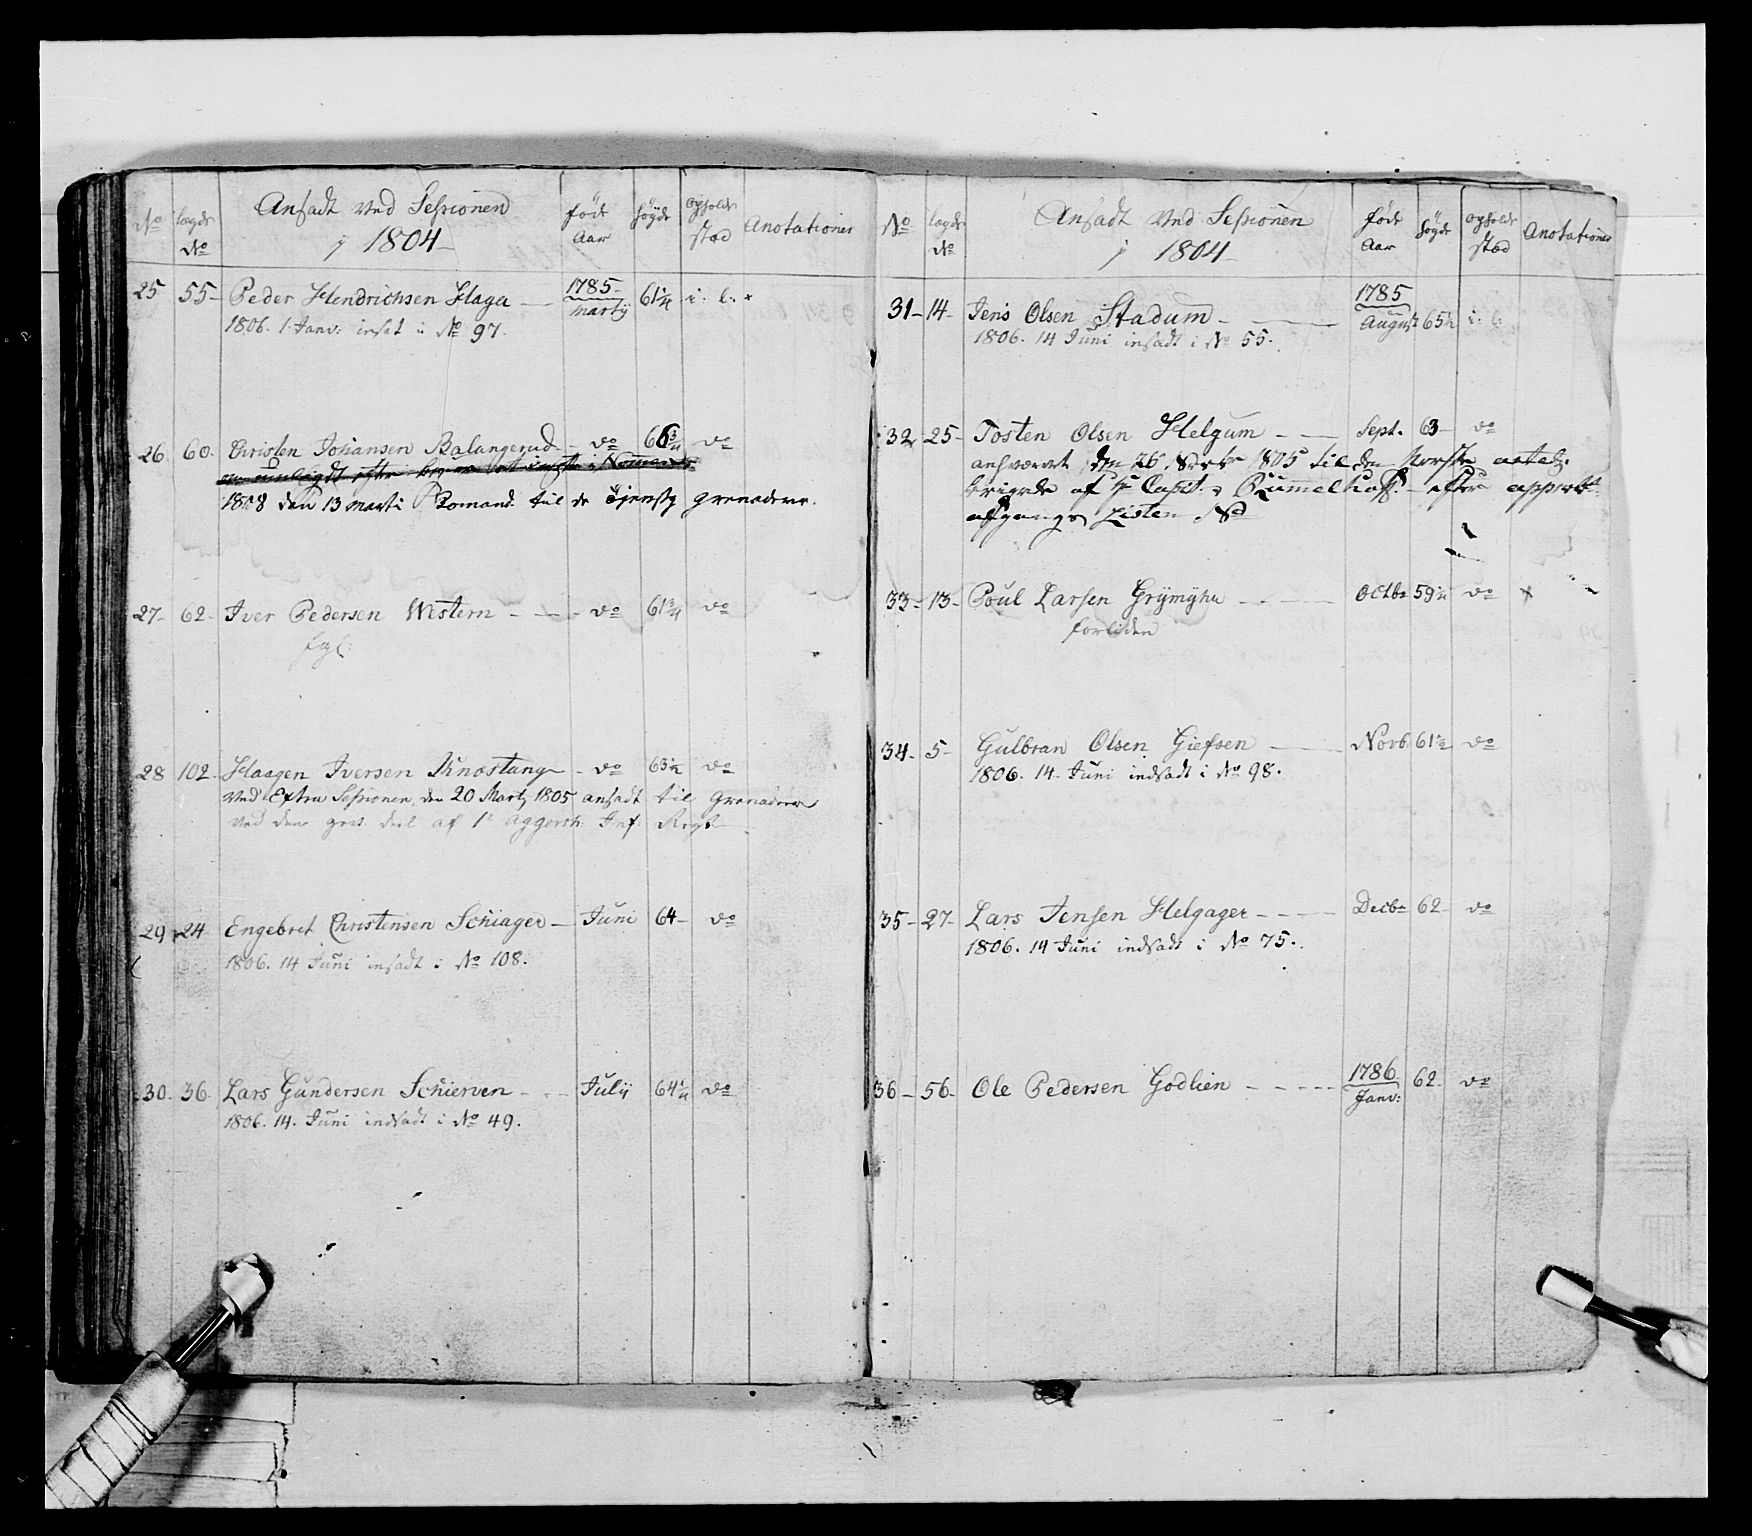 No | lægds No | Ansadt ved Sessionen j 1804 | føde Aar | høyde | opholds stæd | Anotationer
25 | 55 | Peder Hendrichsen Haga | 1785 Martij | 61 1/4 | i. l.
1806. 1. Janv: insat i No 97.
26 | 60 | Christen Johansen Balangerud | do | 66 3/4 | do
1808 den 13 Marti til de grenaderer.
27 | 62 | Iver Pedersen Western | do | 61 3/4 | do
fgl:
28 | 102 | Haagen Iversen Knostang | do | 63 1/2 | do
ved Extra Sessionen den 20 Martz 1805 ansadt til Grenaderer
ved den deel af 1te Aggersh. Inf. Regt
29 | 24 | Engebret Christensen Schiager | Juni | 64 | do
1806. 14 Juni insadt i No 108.
30 | 36 | Lars Gundersen Schierven | Julij | 64 1/4 | do
1806. 14. Juni indsadt i No 49.
No | lægds No | Ansadt ved Sessionen j 1804 | føde Aar | høyde | opholds stæd | Anotationer
31 | 14 | Jens Olsen Stadum | 1785 August | 65 1/2 | i. l.
1806. 14 Juni insadt i No 55.
32 | 25 | Tosten Olsen Helgum | Sept. | 63 | do
anhværvet den 26 1805 til den Norske
brigade af Capit. v. Rummelhoff. efter
afgangs Listen
33 | 13 | Poul Larsen Grymyhr | Octbr | 59 1/4 | do
forliden
34 | 5 | Gulbran Olsen Giefsen | Novb. | 61 1/2 | do
1806. 14. Juni indsadt i No 98.
35 | 27 | Lars Jensen Helgager | Decbr | 62 | do
1806. 14 Juni indsadt i No 75.
36 | 56 | Ole Pedersen Godlien | 1786 Janv: | 62 | do